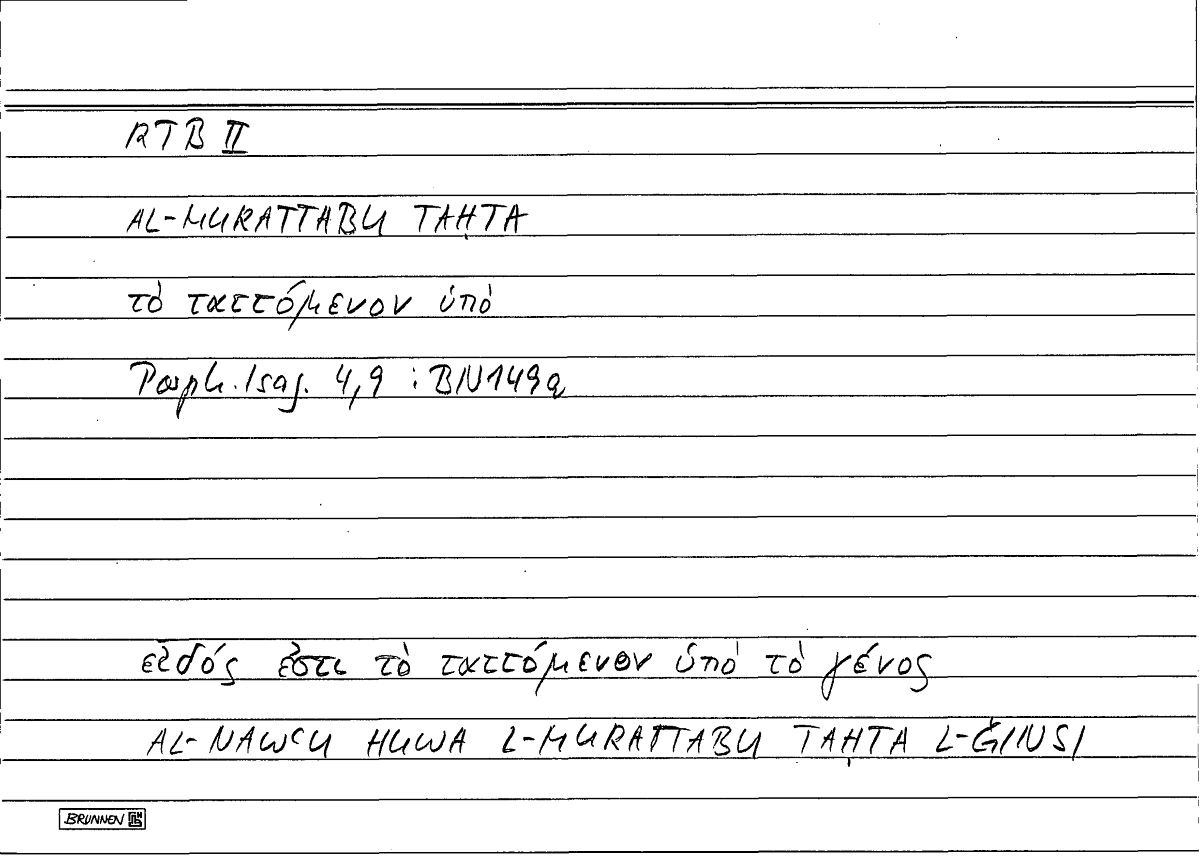 RTB II
AL-MURATTABU TAḤTA
τὸ ταττόμενον ὑπὸ
Porph. Isag. 4,9 : BN149a
εἶδός ἐστι τὸ ταττόμενον ὑπὸ τὸ γένος
AL-NAWʿU HUWA L-MURATTABU TAḤTA L-ǦINSI
BRUNNEN